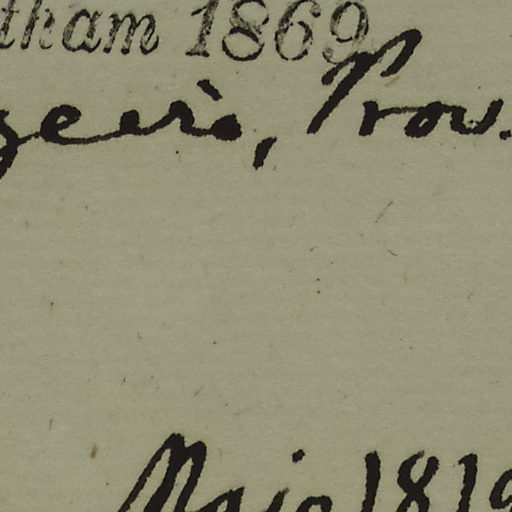 tham 1869
geerò, Prov.
Majo 1819